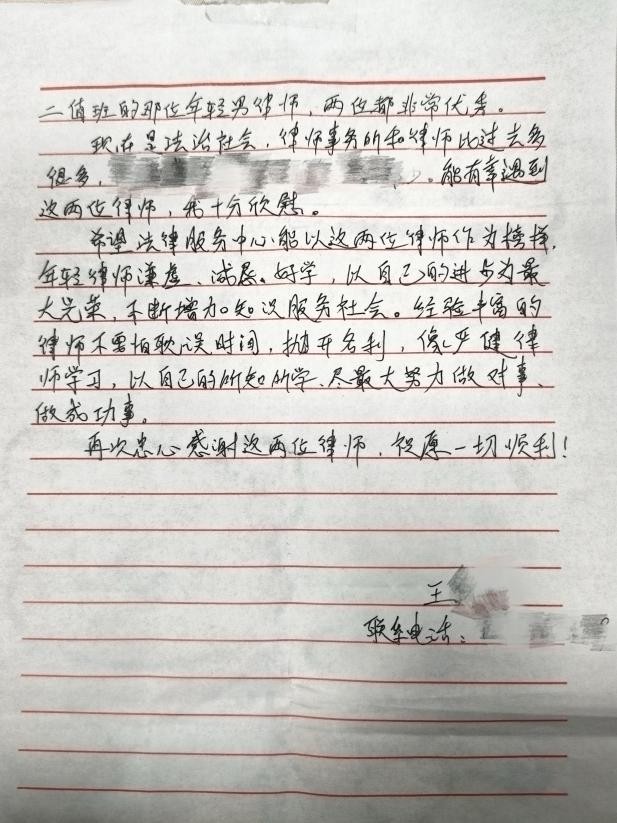 二值班的那位年轻男律师，两位都非常优秀。
现在是法治社会，律师事务所和律师比过去多
很多，）。能有幸遇到
这两位律师，我十分欣慰。
希望法律服务中心能以这两位律师作为榜样，
年轻律师谦虚、诚恳。好学，以自己的进步为最
大光荣，不断增加知识服务社会。经验丰富的
律师不要怕耽误时间，抛开名利，像严健律
师学习，以自己的所知所学、尽最大努力做对事、
做成功事。
再次忠心感谢这两位律师，祝愿一切顺利！
王
联系电话：